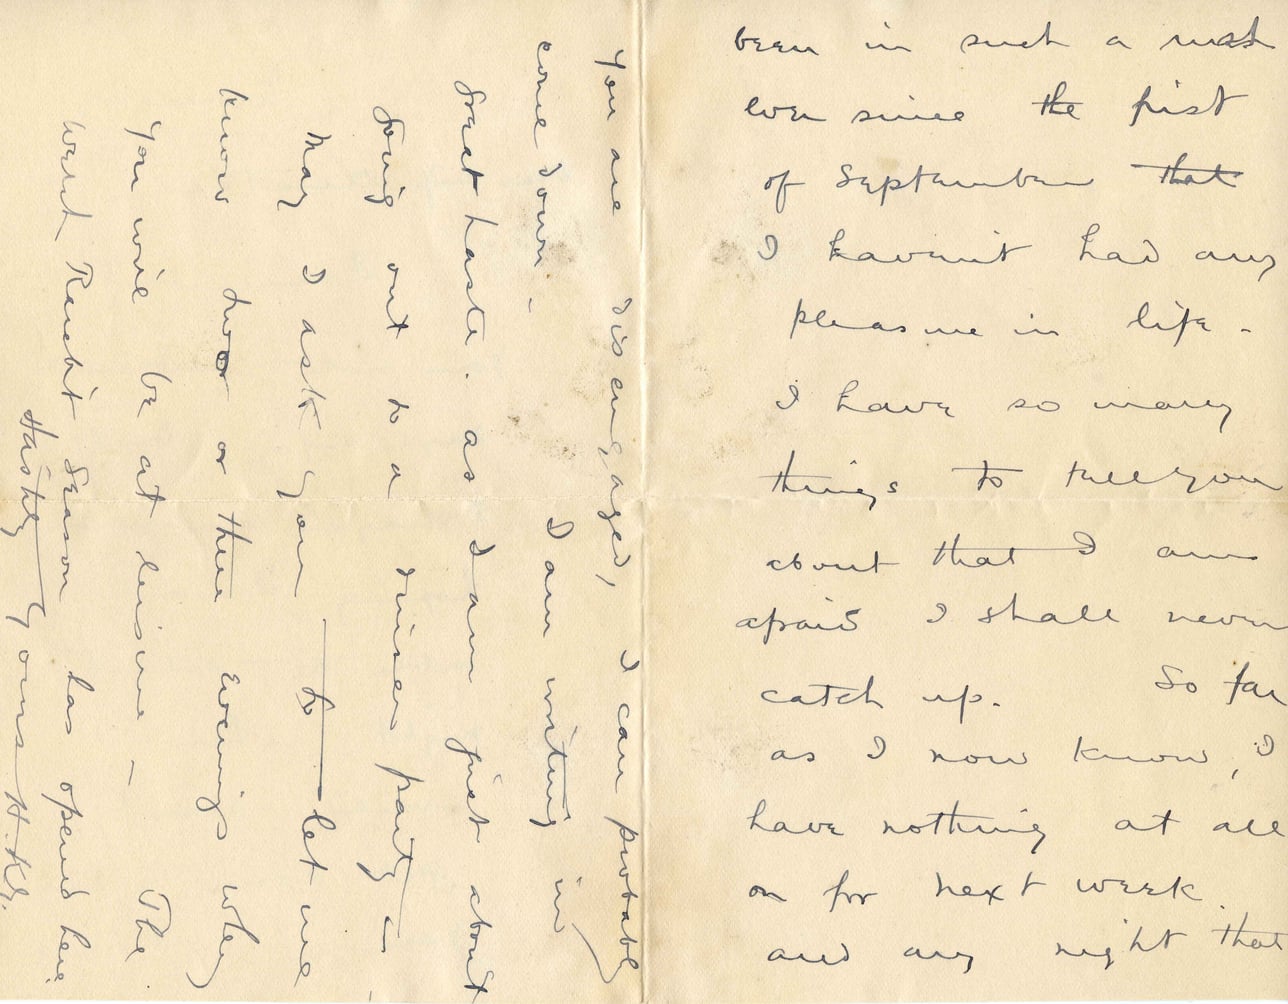 been in such a rush
ever since ~~the~~ first
of September ~~that~~
I haven't had any
pleasure in life -
I have so many
things to tell you
about that I am
afraid I shall never
catch up. So far
as I now know, I
have nothing at all
on for next week.
and any night that
you are disengaged, I can probably
come down - I am writing in
great haste. as I am just about
going out to a dinner party -
May I ask you to let me
know two or three evenings when
you will be at leisure - The
Welsh Rarebit Season has opened here
Hastily yours H.